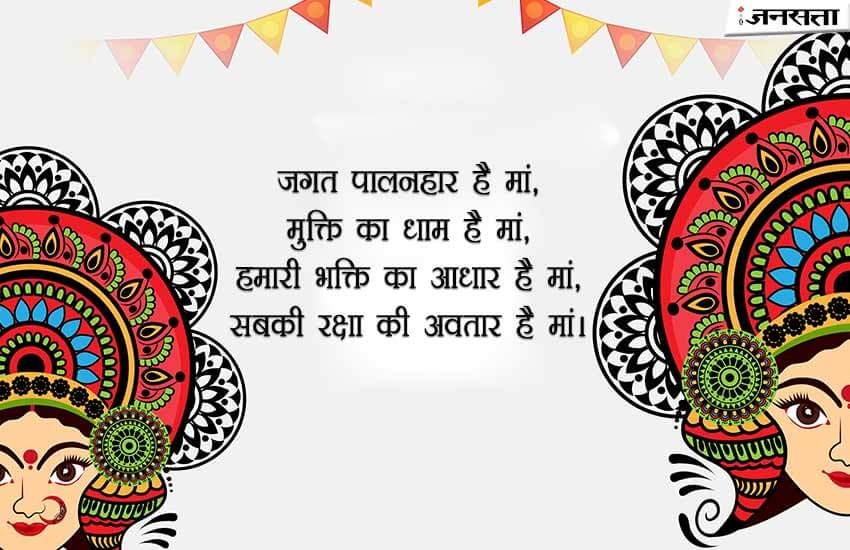 जनसत्ता
जगत पालनहार है मां,
मुक्ति का धाम है मां,
हमारी भक्ति का आधार है मां,
सबकी रक्षा की अवतार है मां।